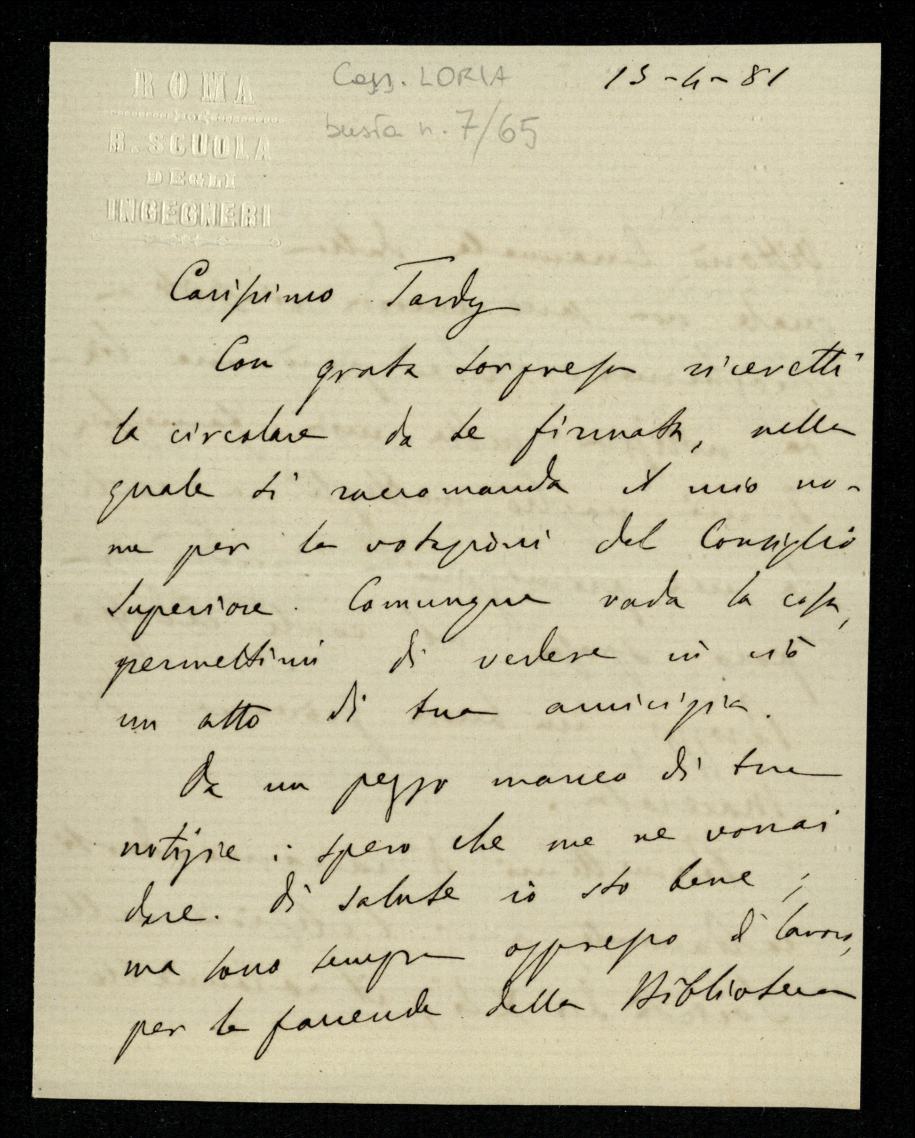 ROMA
R. SCUOLA
DEGLI
INGEGNERI
Cass. LORIA
busta n. 7/65
15-4-81
Carissimo Tardy
Con grata sorpresa ricevetti
la circolare da te firmata, nella
quale si raccomanda il mio no-
me per le votazioni del Consiglio
Superiore. Comunque vada la cosa,
permettimi di vedere in ciò
un atto di tua amicizia.
Da un pezzo manco di tue
notizie: spero che me ne vorrai
dare. Di salute io sto bene;
ma sono sempre oppresso di lavoro,
per le faccende della Biblioteca